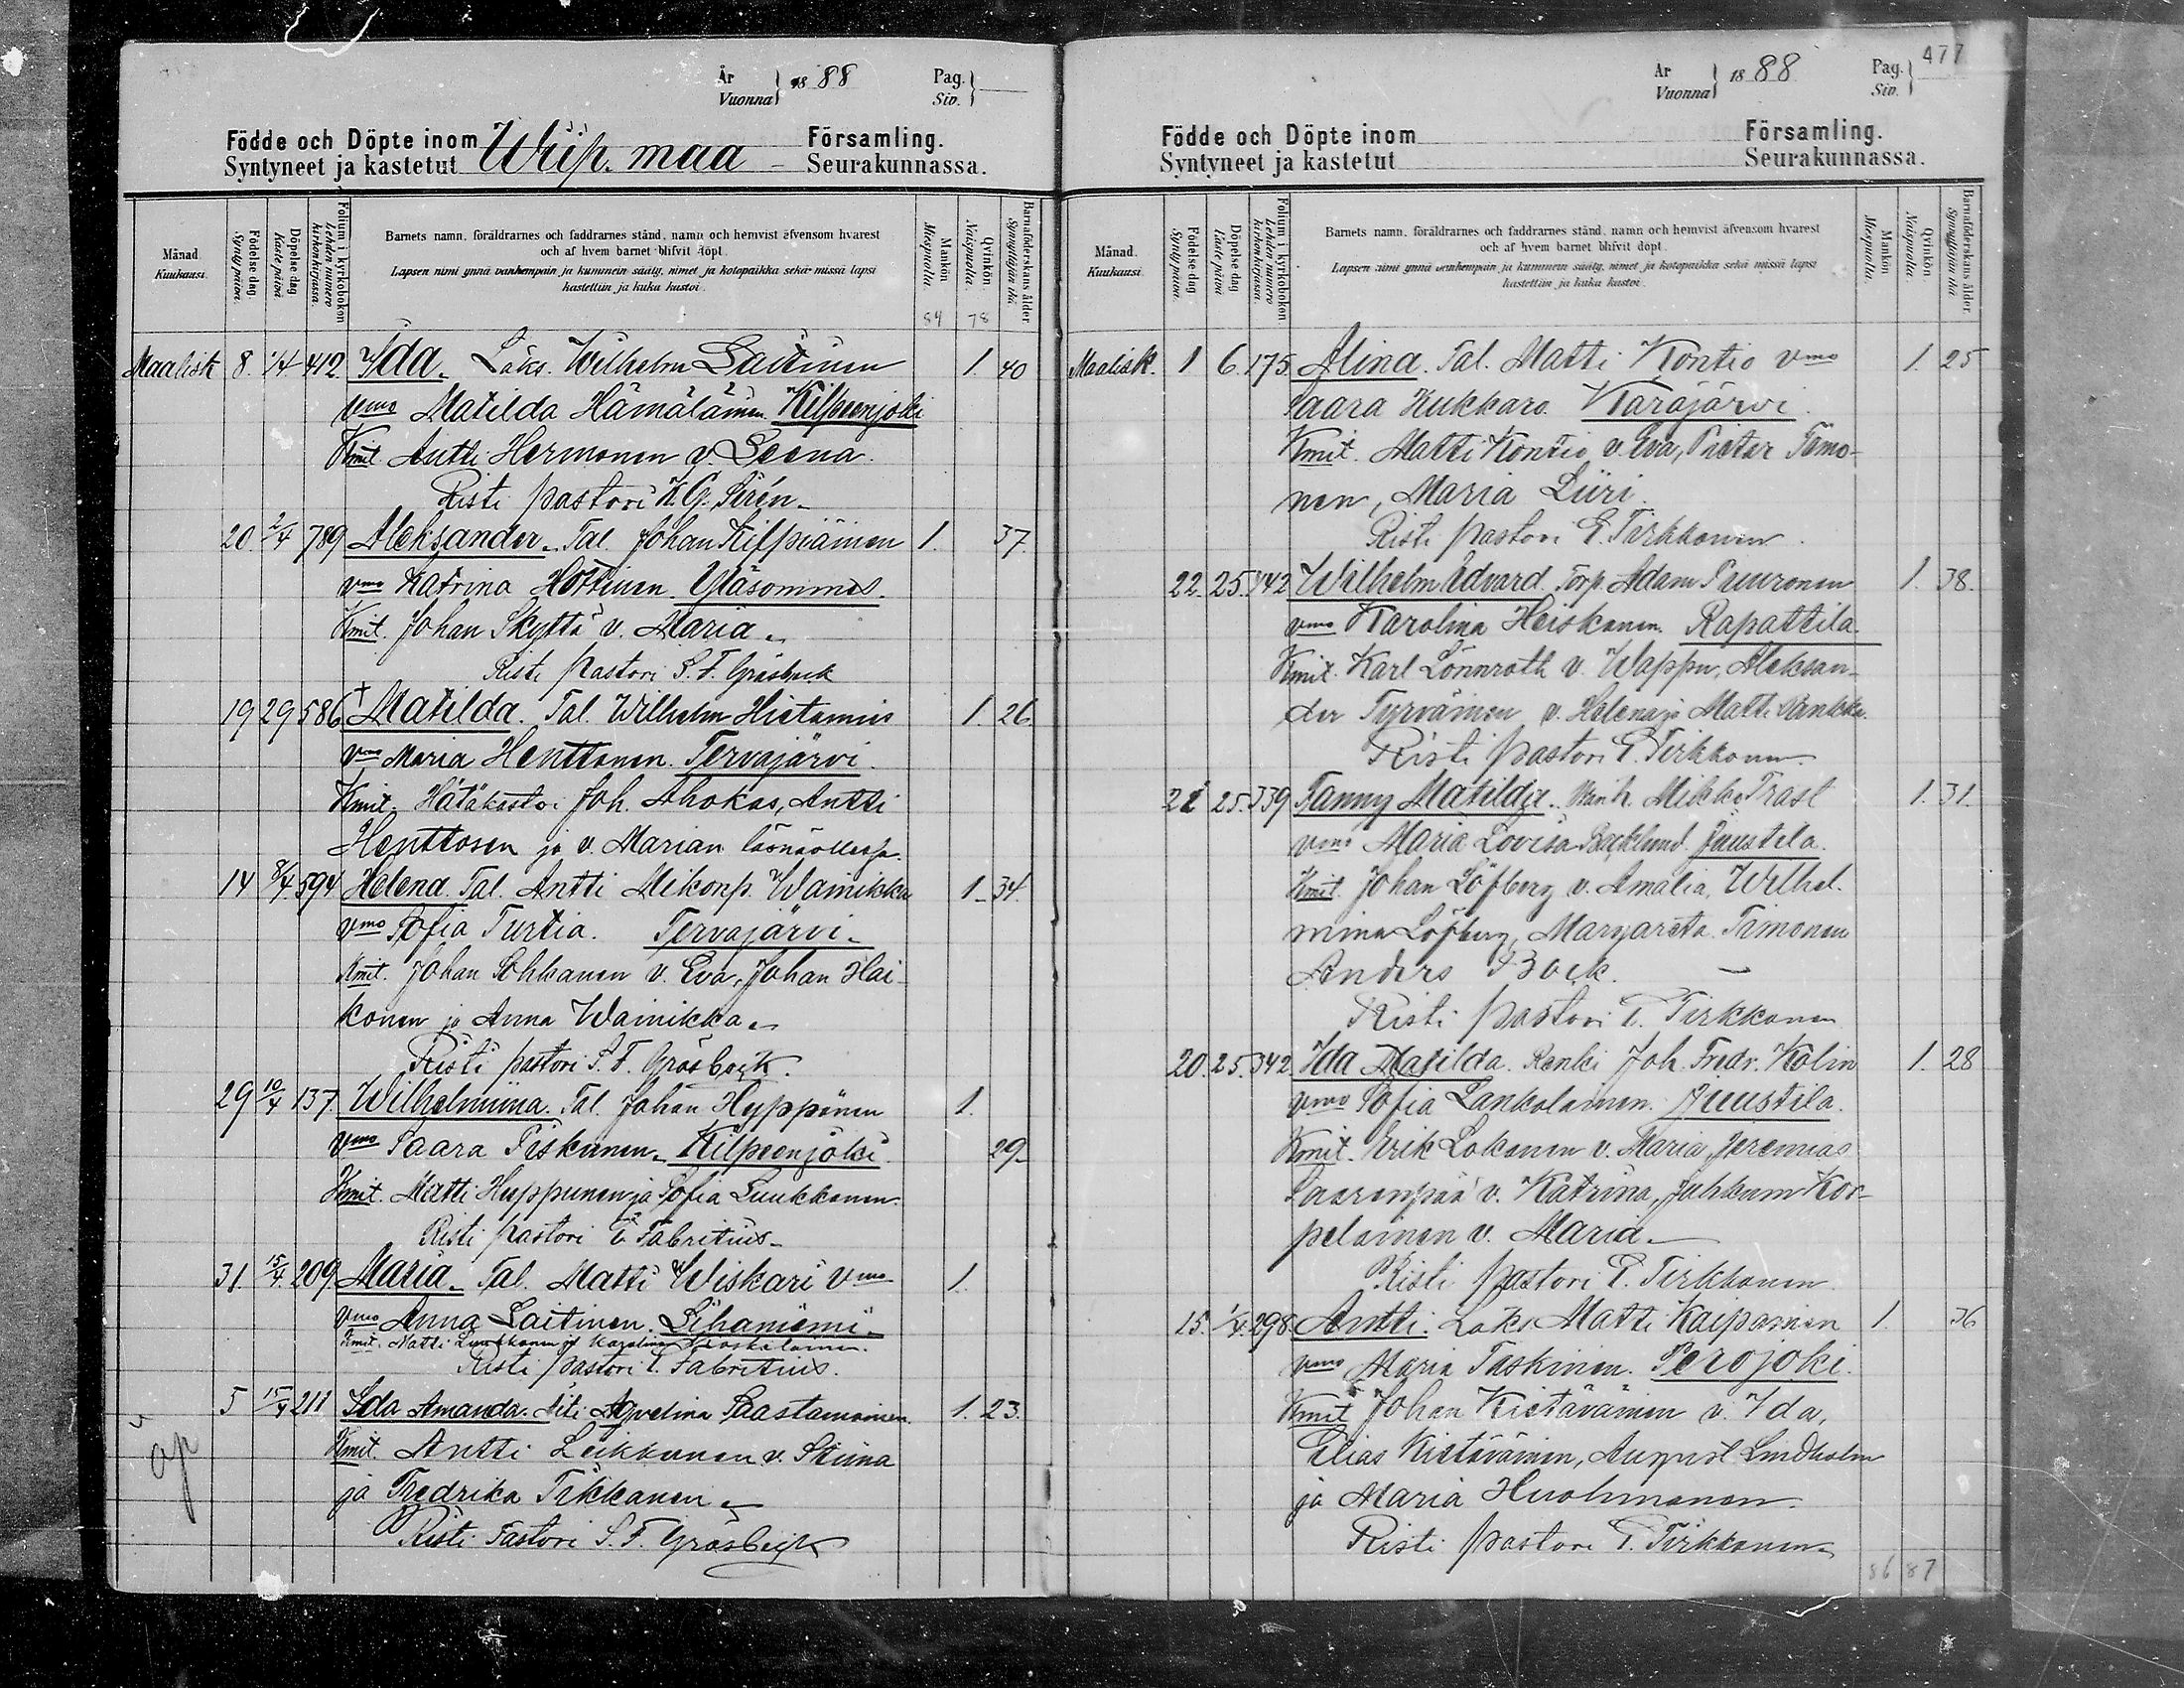 År
Vuonna
1888
Pag.
Siv.
Födde och Döpte inom
Syntyneet ja kastetut
Wiip. maa
Församling.
Seurakunnassa.
Månad.
Kuukausi.
Födelse dag.
Syntypäivä.
Döpelse dag
Kastepäivä
Folium i kyrkoboken
Lehden numero kirkonkirjassa.
Barnets namn, föräldrarnes och faddrarnes stånd, namn och hemvist äfvensom hvarest
och af hvem barnet blifvit döpt.
Lapsen nimi ynnä vanhempain ja kummein sääty, nimet ja kotopaikka sekä missä lapsi
kastettiin ja kuka kastoi.
Mankön
Miespuolta
Qvinkön
Naispuolta
Barnaföderskans ålder.
Synnyttäjän ikä
84 78
Maalisk 8. 1/4 412 Ida. Loks. Wilhelm Laitinen 1. 40
vmo Matilda Hämäläinen. Kilpeenjoki
Kmit. Antti Hermonen v. Leena.
Risti pastori K. G. Sirén.
20. 2/4 789 Aleksander. Tal. Johan Kilpiäinen 1. 37.
vmo Katrina Hottinen. Yläsommes.
Kmit. Johan Skyttä v. Maria.
Risti Pastori S. F. Gräsbeck
19 29 586 † Matilda. Tal. Wilhelm Hietamies 1. 26
vmo Maria Henttonen. Tervajärvi.
Kmit. Hätäkastoi Joh. Ahokas, Antti
Henttosen ja v. Marian läsnäollessa.
14 8/4 594 Helena. Tal. Antti Mikonp. Wainikka 1. 34.
vmo Sofia Turtia. Tervajärvi.
Kmit. Johan Sohkanen v. Eva, Johan Hai-
konen ja Anna Wainikka.
Risti pastori S. F. Gräsbeck.
29 10/4 137. Wilhelmiina. Tal. Johan Hyppönen 1.
vmo Saara Piskunen. Kilpeenjoki. 29.
Kmit. Matti Huppunen ja Sofia Luukkonen.
Risti pastori E. Fabritius.
31. 15/4 209. Maria. Tal. Matti Wiskari vmo 1.
vmo Anna Laitinen. Lihaniemi.
Kmit. Matti Luukkonen ja Karolina
Risti pastori E. Fabritius.
5 15/4 211 Ida Amanda. Äiti Agvelina Saastamoinen. 1. 23.
äp
Kmit. Antti Leikkonen v. Stiina
ja Fredrika Tikkanen.
Risti Pastori S. F. Gräsbeck
477
År
Vuonna
1888
Pag.
Siv.
Födde och Döpte inom
Syntyneet ja kastetut
Församling.
Seurakunnassa.
Månad.
Kuukausi.
Födelse dag
Syntypäivä.
Döpelse dag
Kastepäivä
Folium i kyrkoboken.
Lehden numero kirkonkirjassa.
Barnets namn, föräldrarnes och faddrarnes stånd, namn och hemvist äfvensom hvarest
och af hvem barnet blifvit döpt.
Lapsen nimi ynnä vanhempain ja kummein sääty, nimet ja kotopaikka sekä missä lapsi
kastettiin ja kuka kastoi.
Mankön
Miespuolta.
Qvinkön.
Naispuolta.
Barnaföderskans ålder.
Synnyttäjän ikä
Maalisk. 1 6. 175. Alina. Tal. Matti Kontio vmo 1. 25
Saara Hukkaro. Käräjärvi.
Kmit. Matti Kontio v. Eva, Pietar Timo-
nen, Maria Liiri.
Risti pastori E. Tirkkonen.
22. 25. 142 Wilhelm Edvard Torp. Adam Puuronen 1. 38.
vmo Karolina Heiskanen. Rapattila.
Kmit. Karl Lönnroth v. Wappu, Aleksan-
der Tyrväinen v. Helena ja Matti Pankka.
Risti pastori E. Tirkkonen.
21 25. 339 Fanny Matilda. Mikko Trast 1. 31.
vmo Maria Lovisa Backlund. Juustila.
Kmit. Johan Löfberg v. Amalia, Wilhel-
mina Löfberg, Margareta Timonen
Anders Bock.
Risti pastori E. Tirkkonen
20. 25. 342. Ida Matilda. Renki Joh. Fredr. Kolin 1. 28
vmo Sofia Lankolainen. Juustila.
Kmit. Erik Lokanen v. Maria, Jeremias
Saarenpää v. Katrina, Juhkum Kor-
pelainen v. Maria.
Risti pastori E. Tirkkonen
15. 1/4. 298. Antti. Loks. Matti Kaipainen 1. 36
vmo Maria Taskinen. Perojoki.
Kmit Johan Kietäväinen v. Ida,
Elias Kietäväinen, August Lindholm
ja Maria Huohmanen.
Risti pastori E. Tirkkonen.
86 87